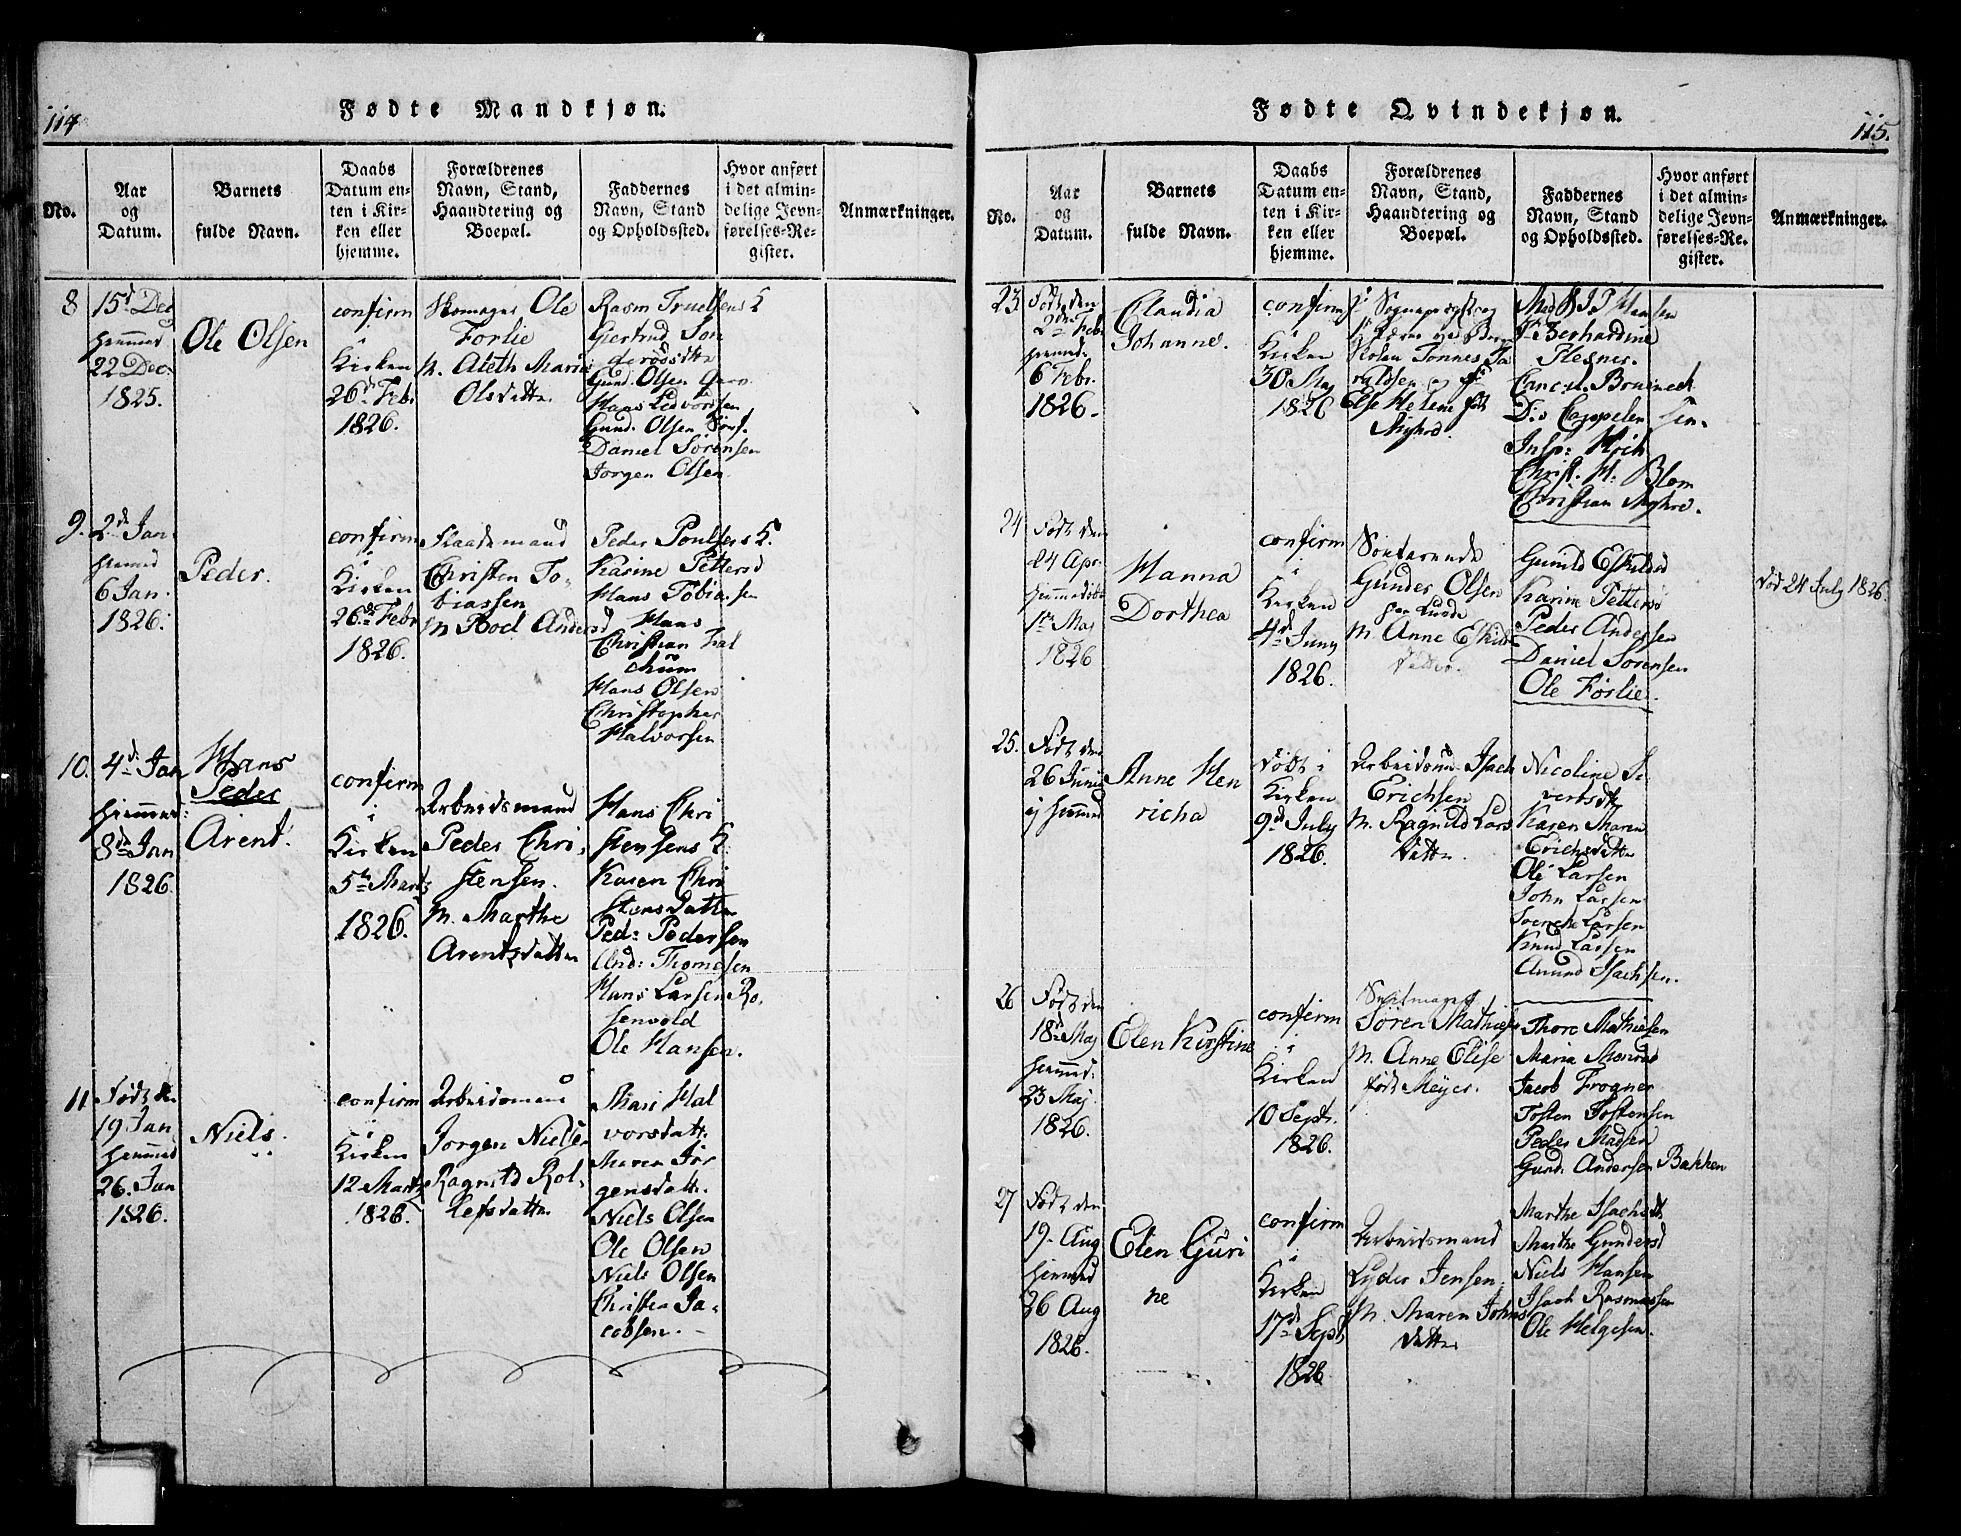 114
Fødte Mandkjøn.
No.
Aar
og
Datum.
Barnets
fulde Navn.
Daabs
Datum en-
ten i Kir-
ken eller
hjemme.
Forældrenes
Navn, Stand,
Haandtering og
Boepæl.
Faddernes
Navn, Stand
og Opholdssted.
Hvor anført
i det almin-
delige Jevn-
førelses-Re-
gister.
Anmærkninger.
8
15d Dec
hjemmed
22 Dec.
1825.
Ole Olsen
confirm
i
Kirken
26d Febr
1826.
Skomager Ole
Forlie
M. Aleth Maria
Olsdatter
Rasm Truelsens K
Giertrud Ton
derødsdtr
Gund. Olsen
Hans Ledvorsen
Gund. Olsen
Daniel Sørensen
Jørgen Olsen
9.
2d Jan.
hjemmed
6 Jan.
1826.
Peder.
confirm
i
Kirken
26de Febr
1826.
Christen To-
biassen
M Boel Andersd
Peder Poulsens K.
Karine Pettersd
Hans Tobiasen
Hans
Christian Hal
chum
Hans Olsen
Christopher
Halvorsen
10.
4d Jan
hjemmed
8d Jan
1826.
Hans
Peder
Arent.
confirm
i
Kirken
5te Martz
1826.
Arbeidsmand
Peder Chri-
stensen.
M. Marthe
Arentsdatter
Hans Chri
stensens K.
Karen Chri
stensdatter
Ped: Pedersen
And: Thomesen
Hans Larsen Ro.
senvold
Ole Hansen.
11
Født den
19 Jan
hjemmed
26. Jan
1826.
Niels.
confirm
i
Kirken
12 Martz
1826.
Arbeidsmand
Jørgen Nielsen
Ragnild Rol-
lefsdatter
Mari Hal
vorsdatt.
Maren Jør
gensdatt.
Niels Olsen
Ole Olsen
Niels Olsen
Christen Ja-
cobsen.
Fødte Qvindekjøn.
115.
No.
Aar
og
Datum.
Barnets
fulde Navn.
Daabs
Datum en-
ten i Kir-
ken eller
hjemme.
Forældrenes
Navn, Stand,
Haandtering og
Boepæl.
Faddernes
Navn, Stand
og Opholdssted.
Hvor anført
i det almin-
delige Jevn-
førelses-Re-
gister.
Anmærkninger.
23
Født den
2den Febr
hjemmd.
6 Febr.
1826.
Claudia
Johanne.
confirm
i
Kirken
30 May
1826
Tønnes
Else Helene født
Myhre.
Hansen
Berhardine
Flesner.
Bruneck
D: Cappelen
Insp: Höeh
Christ. H. Blom
Christian Myhre.
24
Født den
24 Apr.
1te Maj
1826
Hanna
Dorthea
confirm
i
Kirken
4d Juny
1826.
Gunder Olsen
M. Anne Eskilds
datter.
Gunild Eskildsd
Karine Pettersd
Peder Andersen
Daniel Sørensen
Ole Forlie.
død 24 July 1826.
25.
Født den
26 Junii
ej hjemmed
Anne Hen
richa
døbt i
Kirken
9d July
1826.
Arbeidsm. Isach
Erichsen
M. Ragnild Lars
datter.
Nicoline Si
vertsdtr
Karen Maren
Erichsdatter
Ole Larsen
John Larsen
Svenche Larsen
Knud Larsen
Amund Isachsen.
26
Født den
18d Maj
hjemmed.
23 Maj.
1826.
Elen Kirstine
confirm
i
Kirken
10 Septr.
1826.
Søren Mathiesen
M. Anne Elise
født Meyer.
Thore Mathiesen
Maria Monrad
Jacob Frogner
Tosten Tostensen
Peder Madsen
Gund. Andersen Bakken
27
Født den
19. Aug
hjemmed
26 Aug
1826.
Elen Guri
ne
confirm
i
Kirken
17d Sept
1826
Arbeidsmand
Lyder Jensen.
M. Maren Johns
datter
Marthe Isachsdt.
Marthe Gundersd
Niels Hansen
Isach Rasmussen
Ole Helgesen.